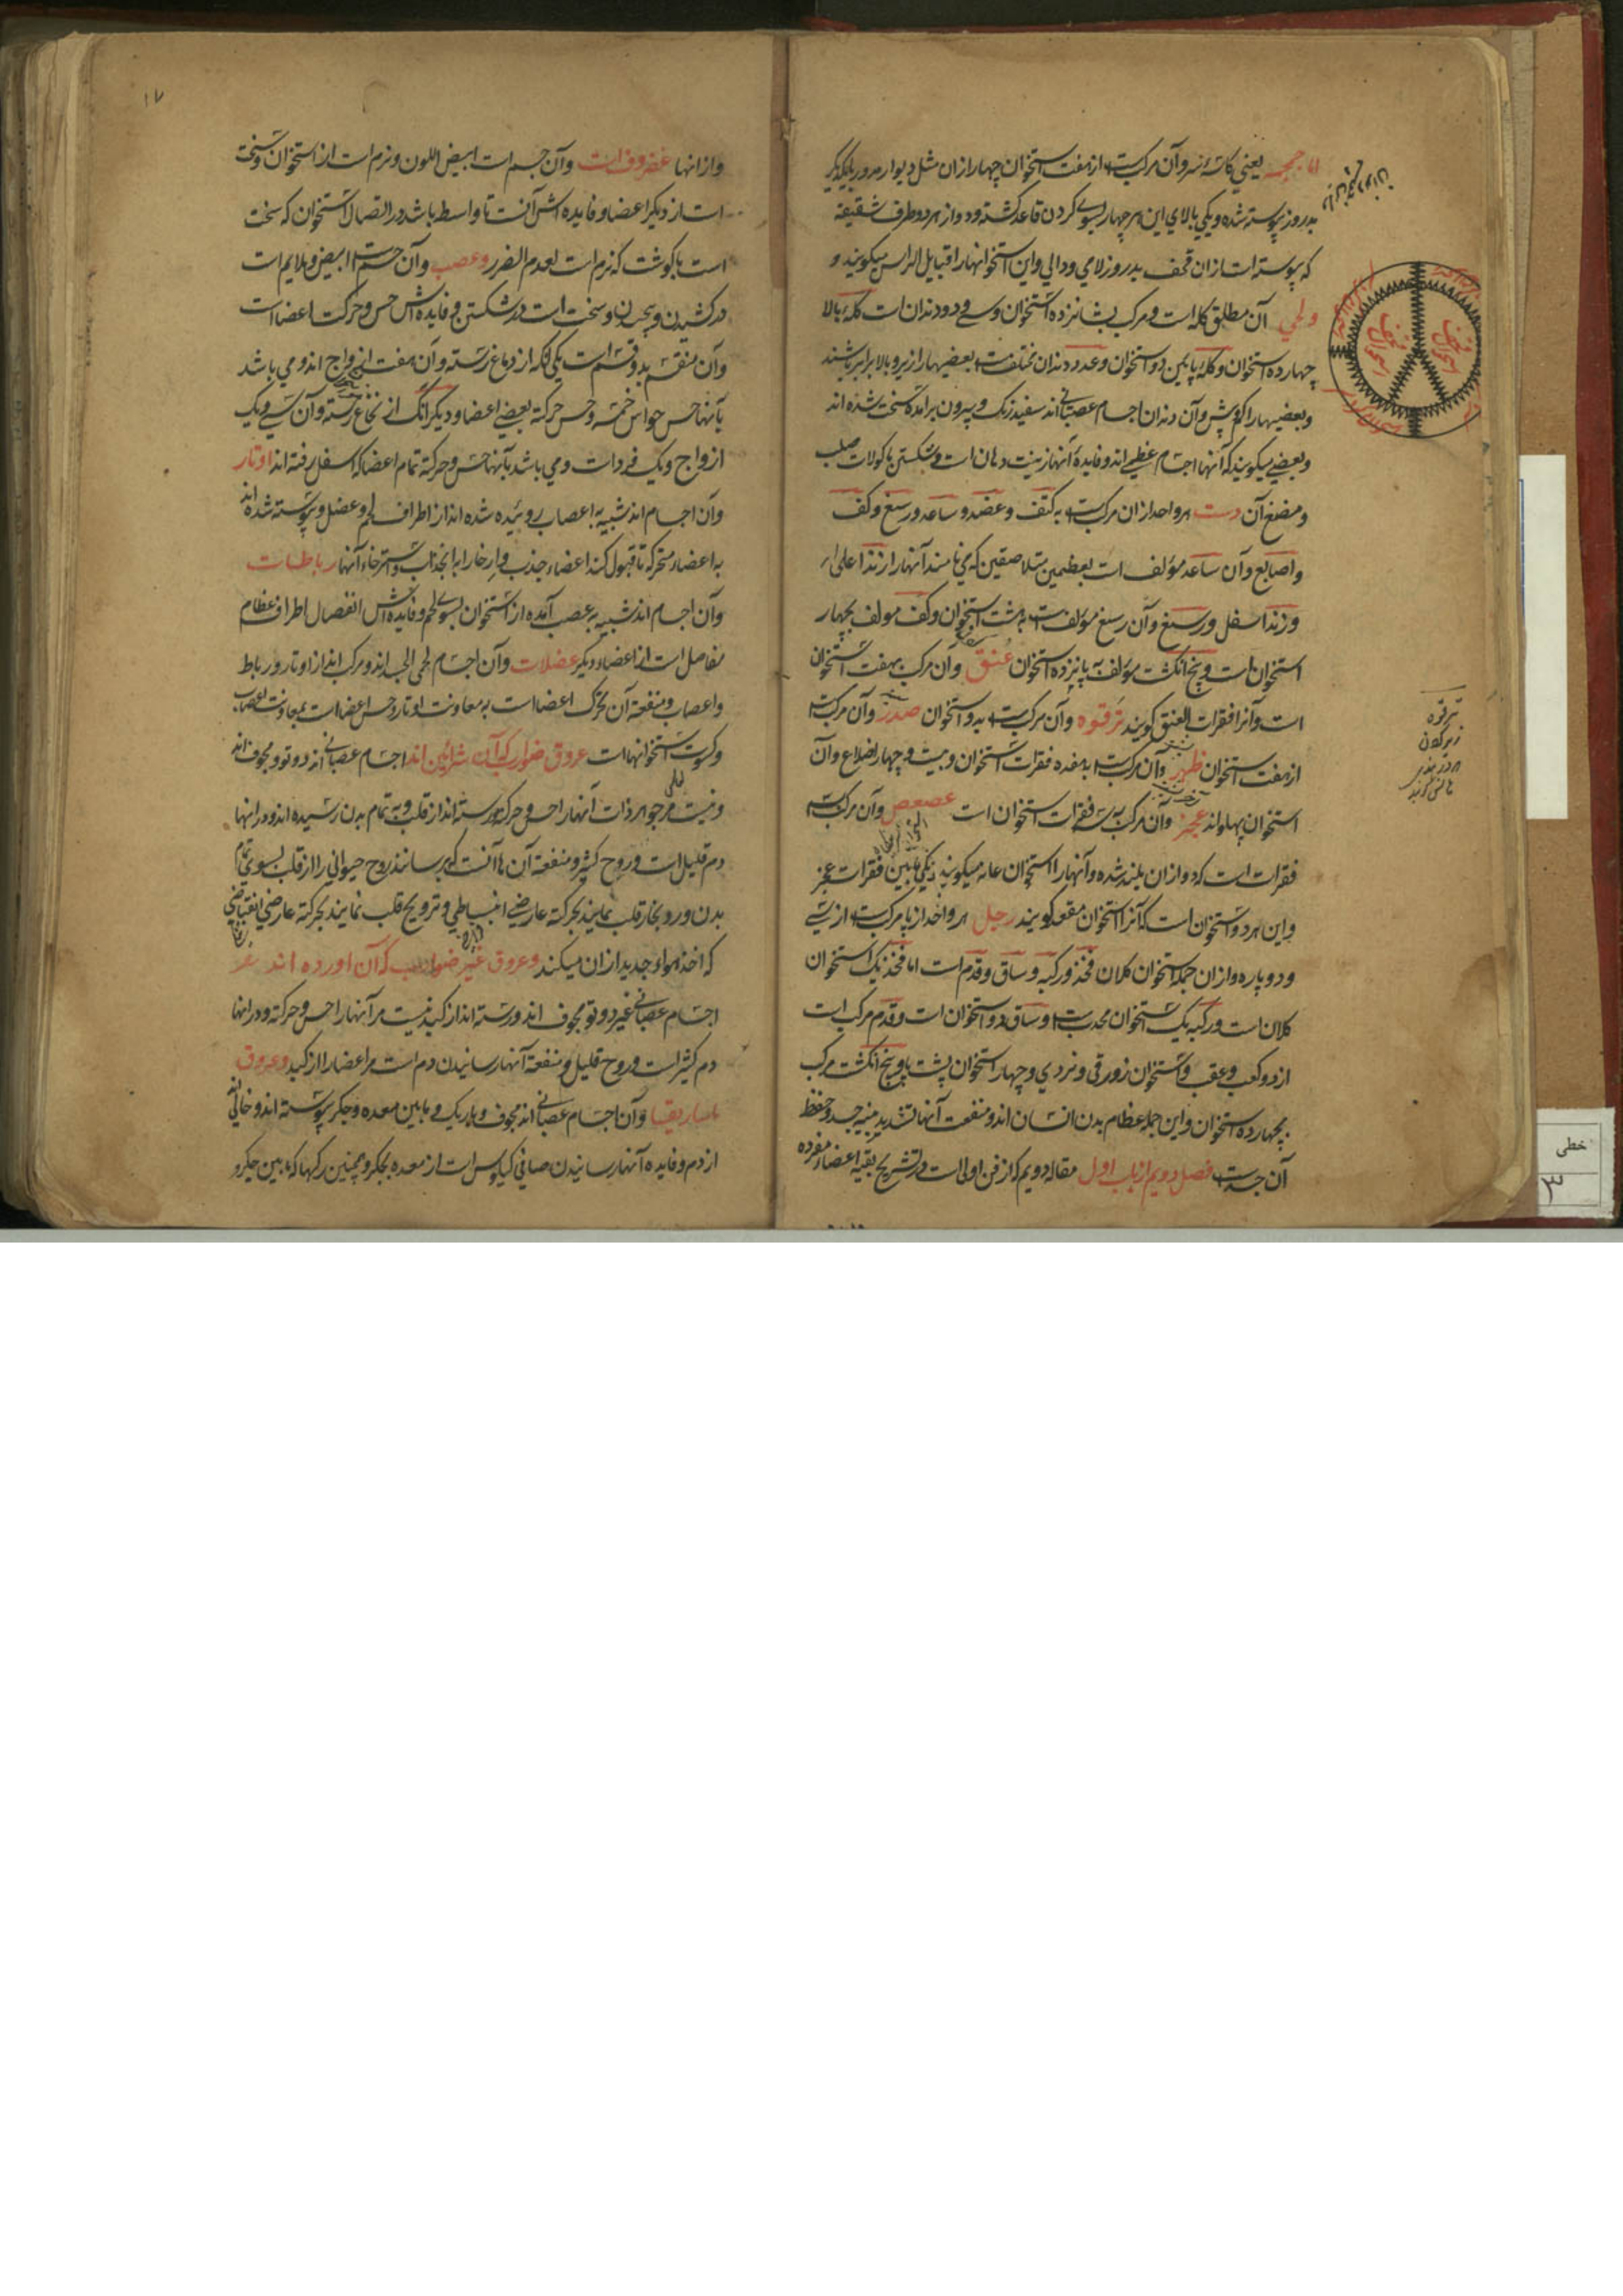 اما جمجمه یعنی کاسهٔ سر و آن مرکبست از هفت استخوان چهار ازان مثل دیوار مدور بایکدیگر
بدروز پیوسته شده و یکی بالای این هر چهار بسوی کردن قاعد کشته و دو از هر دو طرف شقیقه
که پیوسته است ازان قحف بدروز لامی و دالی و این استخوانها را قبایل الراس میکویند و
و لحی آن مطلق کله است و مرکب بشانزده استخوان و سی و دو دندان است کلهٔ بالا
چهارده استخوان و کلهٔ پایین دو استخوان و عدد دندان مختلفست بعضیها را زیر و بالا برابر باشند
و بعضیها را کم و بیش و آن دندان اجسام عصبانی اند سفید رنک و بیرون برآمده سخت شده اند
و بعضی میکویند که آنها اجسام عظمی اند و فایدهٔ آنها زینت دهان است و شکستن ماکولات صلب
و مضغ آن دست هر واحد ازان مرکبست به کتف و عضد و ساعد و رسغ و کف
و اصابع و آن ساعد مؤلف است بعظمین متلاصقین که می نامند آنها را زند اعلی
و زند اسفل و رسغ و آن رسغ مؤلفست به هشت استخوان و کف مولف بچهار
استخوان است و پنج انکشت مؤلف به پانزده استخوان عنق و آن مرکب بهفت استخوان
است و آنرا فقرات العنق کویند ترقوه و آن مرکبست بدو استخوان صدر و آن مرکبست
از هفت استخوان ظهر و آن مرکبست بهفده فقرات استخوان و بیست و چهار اضلاع و آن
استخوان پهلو اند عجز و آن مرکب به سه فقرات استخوان است عصعص و آن مرکبست
فقرات است که دو ازان بلند شده و آنها را استخوان عانه میکویند و یکی مابین فقرات عجز
و این هر دو استخوان است که آنرا استخوان مقعد کویند رجل هر واحد از پا مرکبست از سی
و دو پاره و ازان جمله استخوان کلان فخذ و رکبه و ساق و قدم است اما فخذ یک استخوان
کلان است و رکبه یک استخوان محدبست و ساق دو استخوان است و قدم مرکب است
از دو کعب و عقب و استخوان زورقی و نردی و چهار استخوان پشت پا و پنج انکشت مرکب
بچهارده استخوان و این جمله عظام بدن انسان اند و منفعت آنها تشدید بنیه جسد و حفظ
آن جسد است فصل دویم از باب اول مقاله دویم که از فن اولی است در تشریح بقیه اعضاء مفرده
ترقوه
زیر کردن
۱۷
و از انها غضروف است و آن جسم است ابیض اللون و نرم است از استخوان و سخت
است از دیکر اعضا و فایده اش آنست تا واسطه باشد در اتصال استخوان که سخت
است با کوشت که نرم است لعدم الضرر و عصب و آن جسم است ابیض و ملایم است
در کشیدن و پیچیدن و سخت است در شکستن و فایده اش حس و حرکت اعضا است
و آن منقسم بدو قسم است یکی آنکه از دماغ رسته و آن هفت ازواج اند و می باشد
بآنها حس حواس خمسه و حس حرکته بعضی اعضا و دیکر آنکه از نخاع رسته و آن سی و یک
ازواج و یک فرد است و می باشد بآنها حس و حرکته تمام اعضا که اسفل رقبه اند اوتار
و آن اجسام اند شبیه به اعصاب روئیده شده اند از اطراف لحم و عضل و پیوسته شده اند
به اعضاء متحرکه تا قبول کند اعضاء جذب و ارخا را به انجذاب و استرخاء آنها رباطات
و آن اجسام اند شبیه به عصب آمده از استخوان بسوی لحم و فایده اش اتصال اطراف عظام
مفاصل است از اعضاء دیکر عضلات و آن اجسام لحمی الجسد اند و مرکب اند از اوتار و رباط
و اعصاب و منفعة آن تحرک اعضا است به معاونت اوتار و حس اعضا است بمعاونت اعصاب
و کسوت استخوانها است عروق ضوارب که آن شرائین اند اجسام عصبانی اند دو تو و مجوف اند
و نیست مر جوهر ذات آنها را حس و حرکة رسته اند از قلب و به تمام بدن رسیده اند و در انها
دم قلیل است و روح کثیر و منفعة آن ها آنست که برسانند روح حیوانی را از قلب بسوی تمام
بدن و رد بخار قلب نمایند بحرکته عارضی انبساطی و ترویح قلب نمایند بحرکته عارضی انقباضی
که اخذ هواء جدید ازان میکند و عروق غیر ضوارب که آن اورده اند
اجسام عصبانی غیر دوتو مجوف اند و رسته اند از کبد نیست مر آنها را حس و حرکته و در انها
دم کثیر است و روح قلیل و منفعة آنها رسانیدن دم است مر اعضا را از کبد و عروق
ماساریقیا و آن اجسام عصبانی اند مجوف و باریک و مابین معده و جکر پیوسته اند و خالی
از دم و فایده آنها رسانیدن صافی کیلوس است از معده بجکر و همچنین رکها که مابین جکر و
خطی
۳